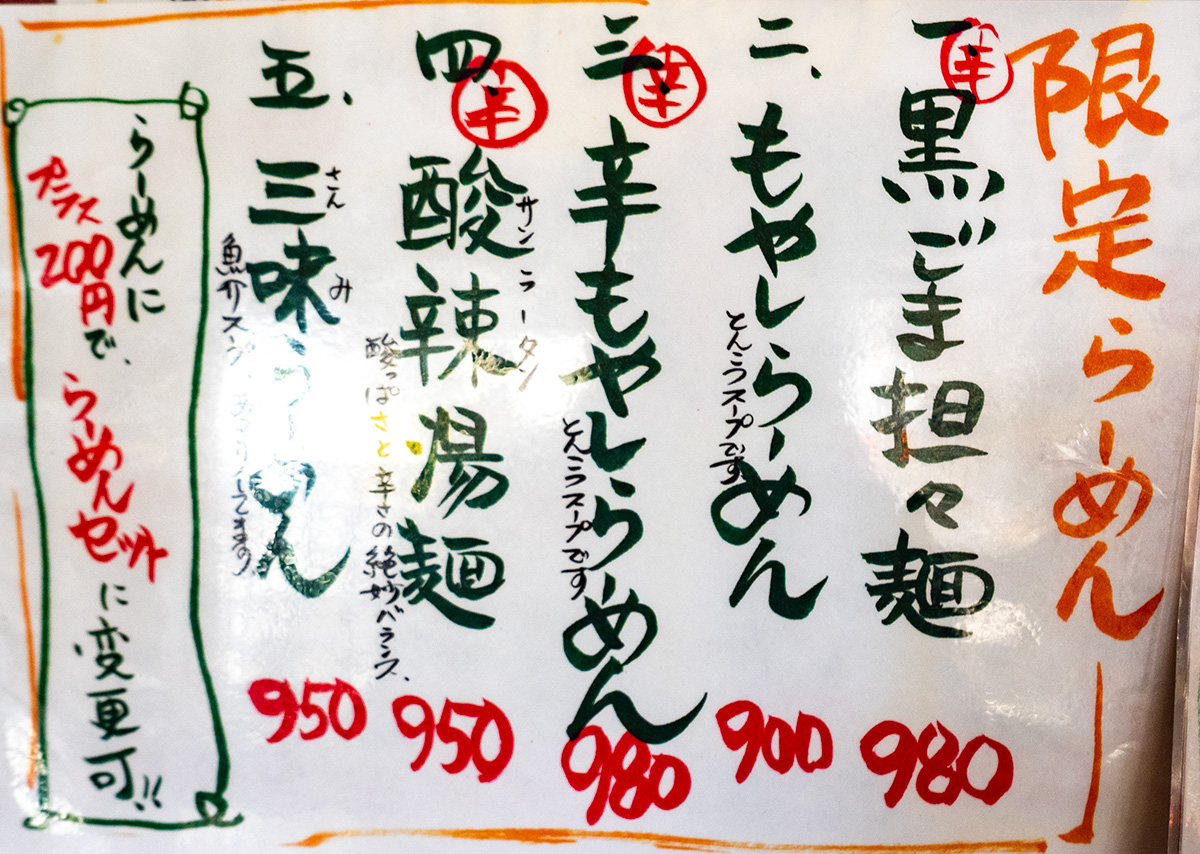 限定らーめん
一、
辛
黒ごま担々麺
980
二、
もやしらーめん
とんこつスープです
900
三、
辛
辛もやしらーめん
とんこつスープです
980
四、
辛
酸辣湯麺
サンラータン
酸っぱさと辛さの絶妙バランス、
950
五、
三味らーめん
さんみ
魚介スープ
950
らーめんに
プラス200円で、
らーめんセット
に変更可!!